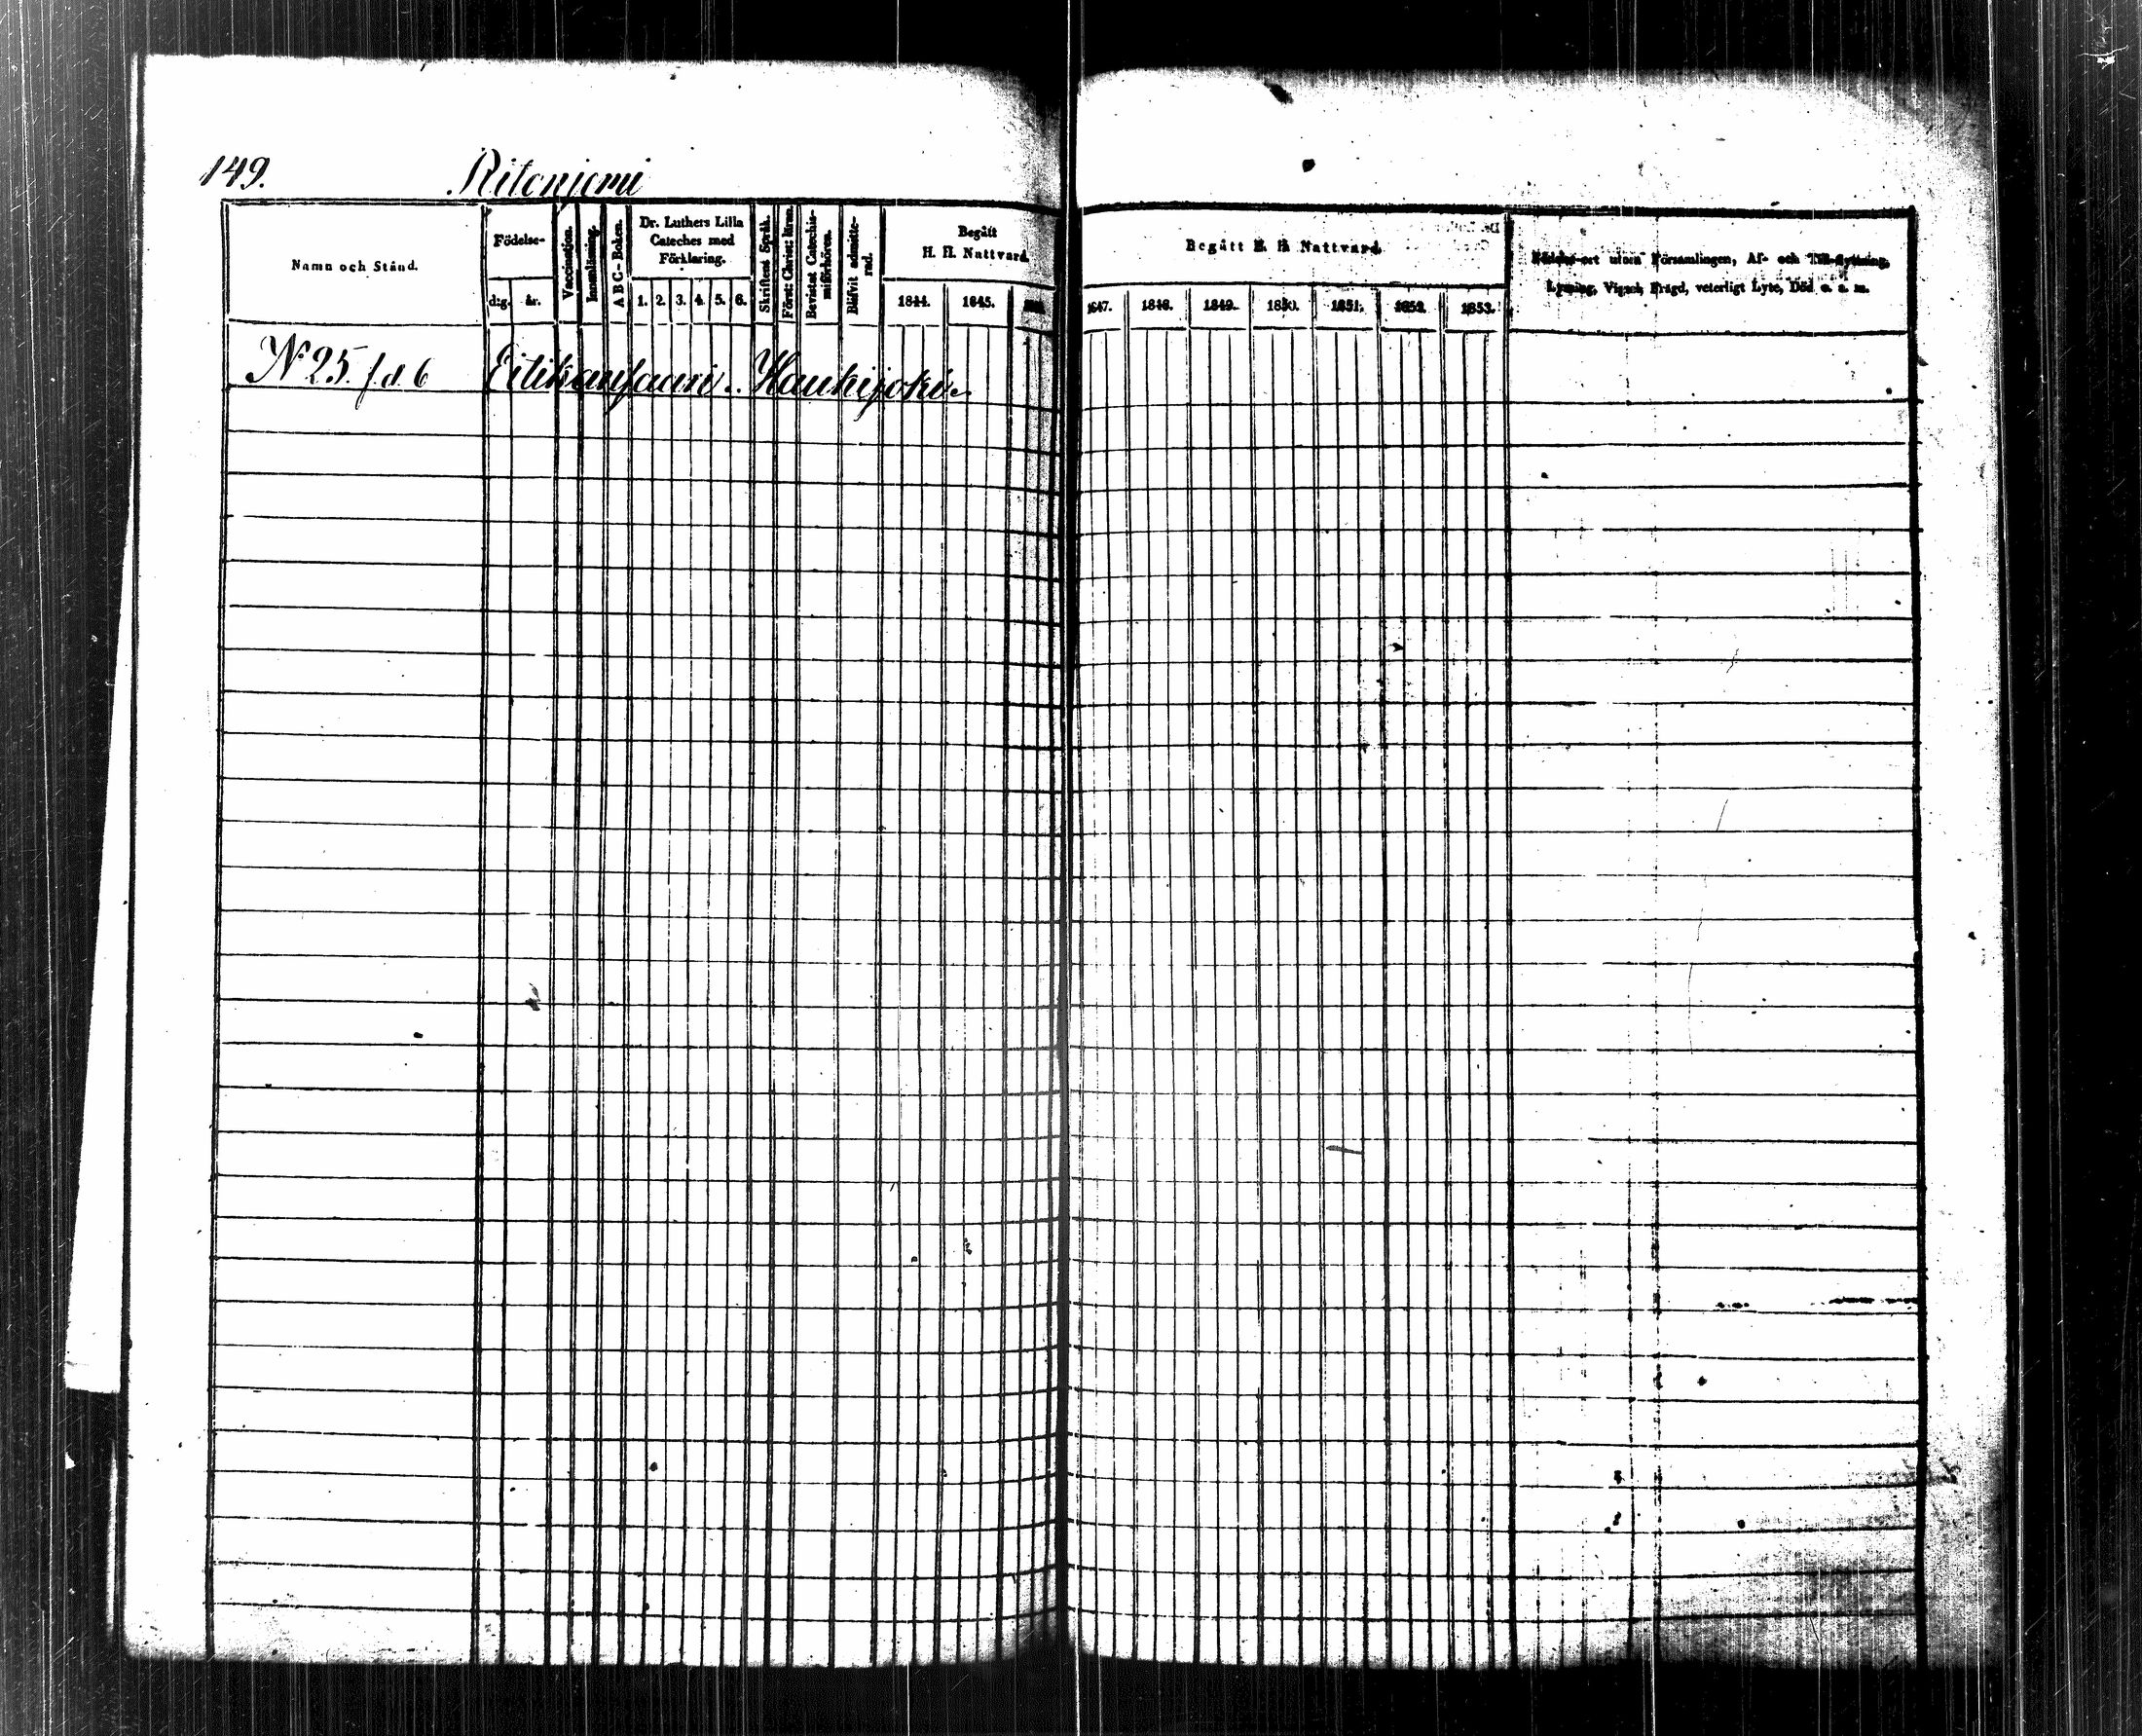 149. Ritoniemi
Namn och Stånd.
Födelse-
d:g. år.
Vaccination.
Innanläsning.
A B C-Boken.
Dr. Luthers Lilla
Cateches med
Förklaring.
1. 2. 3. 4. 5. 6.
Skriftens Språk.
Först: Christ: Kran.
Bevistat Catechis-
miförhören.
Blifvit admitte-
rad.
Begått
H. H. Nattvard.
1844. 1845.
Begått H. H. Nattvard.
1847. 1848. 1849. 1850. 1851. 1852. 1853.
Födelse-ort utom Församlingen, Af- och Till-flyttning,
Lysning, Vigsel, Frägd, veterligt Lyte, Död o. s. m.
N 25. f.d. 6 Eitikansaari. Haukijoki.